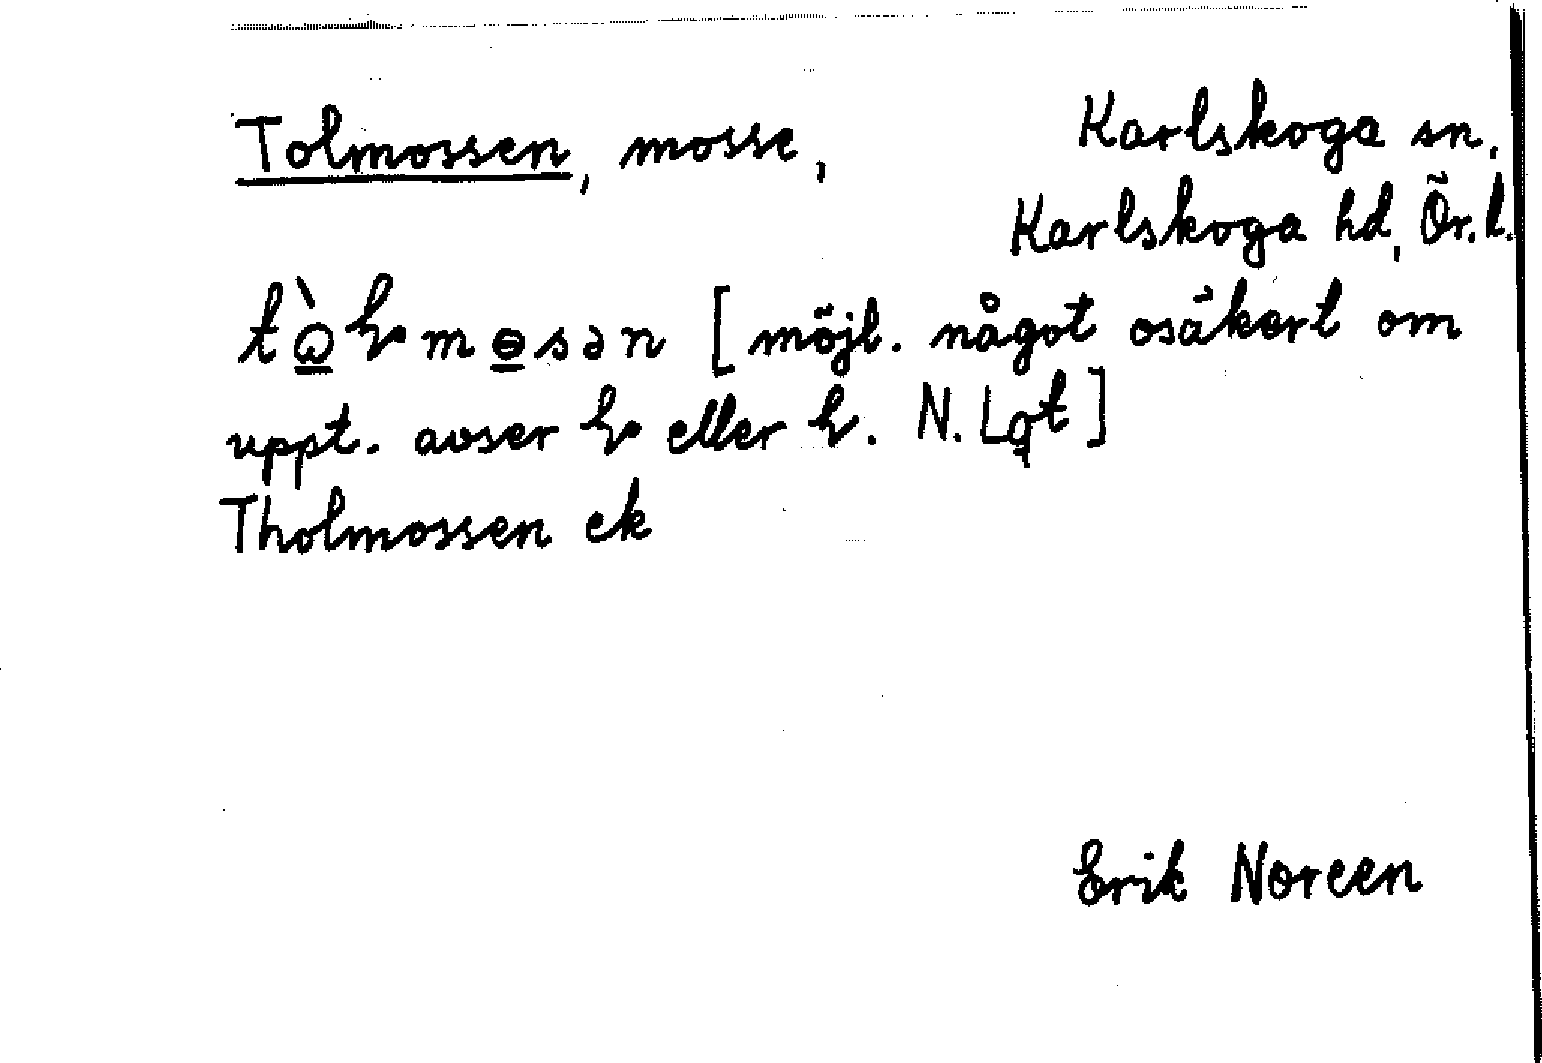 Tolmossen, mosse, Karlskoga sn,
Karlskoga hd, Ör. l.
mɵsən [möjl. något osäkert om
uppt. avser eller N. Lqt]
Tholmossen ek
Erik Noreen